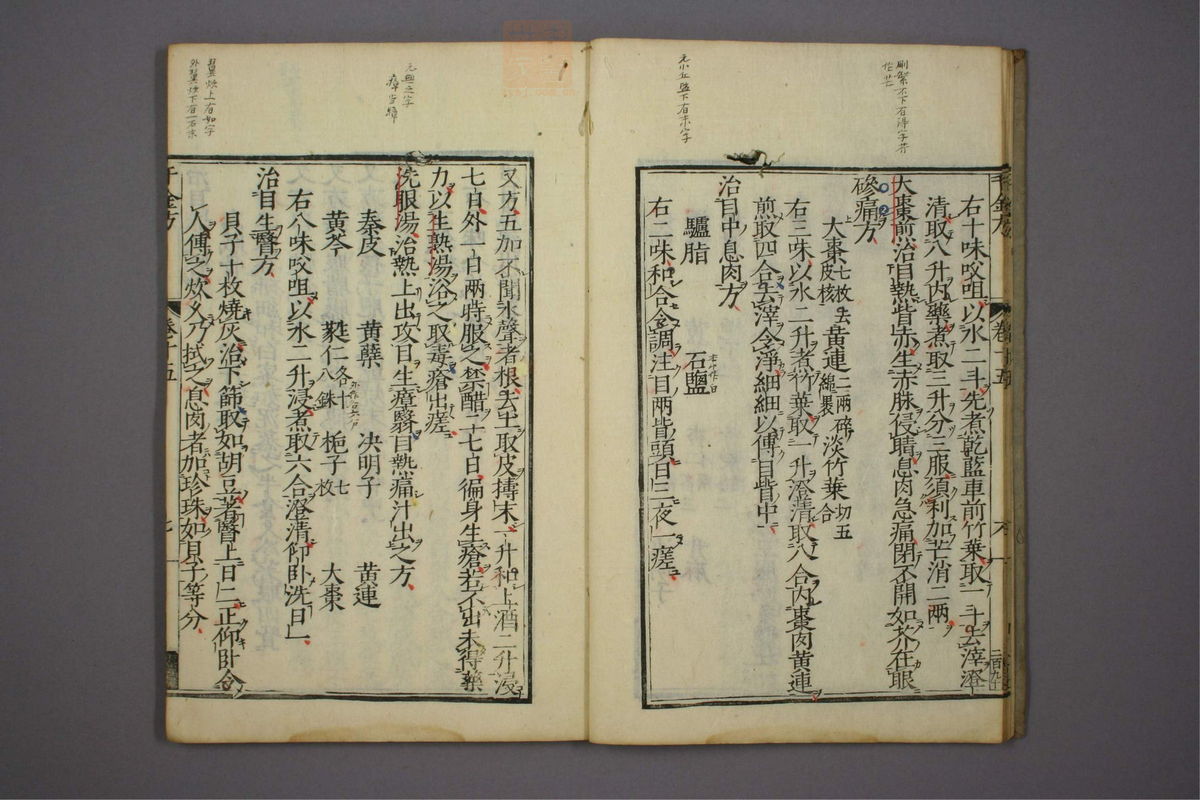 刷繁不下有淂字芥
作芒
元小丘盐下有末字
右十味㕮咀以水二斗先煮乾藍車前竹葉取一斗去滓澄
清取八升內藥煮取三升分三服須利加芒消二兩
大棗煎治目熱眥赤生赤脉侵睛息肉急痛閉不開如芥在眼
磣痛方
大棗七枚去皮核 黃連二兩碎綿裹 淡竹葉切五合
右三味以水二升煮竹葉取一升澄清取八合內棗肉黃連
煎取四合去滓令淨細細以傅目眥中
治目中息肉方
驢脂 石鹽
右二味和合令調注目兩眥頭日三夜一瘥
千金方 卷十五
元無之字
瘴当障
又方五加不聞水聲者根去土取皮擣末一升和上酒二升浸
七日外一日兩時服之禁醋二七日徧身生瘡若不出未得藥
力以生熟湯浴之取毒瘡出瘥
洗眼湯治熱上出攻目生瘴翳目熱痛汁出之方
秦皮 黃蘗 决明子 黃連
黃芩 蕤仁各十八銖 梔子七枚 大棗
右八味㕮咀以水二升浸煮取六合澄清仰卧洗日一
治目生瞖方
貝子十枚燒灰治下篩取如胡豆著瞖上日二正仰卧令
人傅之炊久乃拭之息肉者加珍珠如貝子等分
千金方 卷十五 七